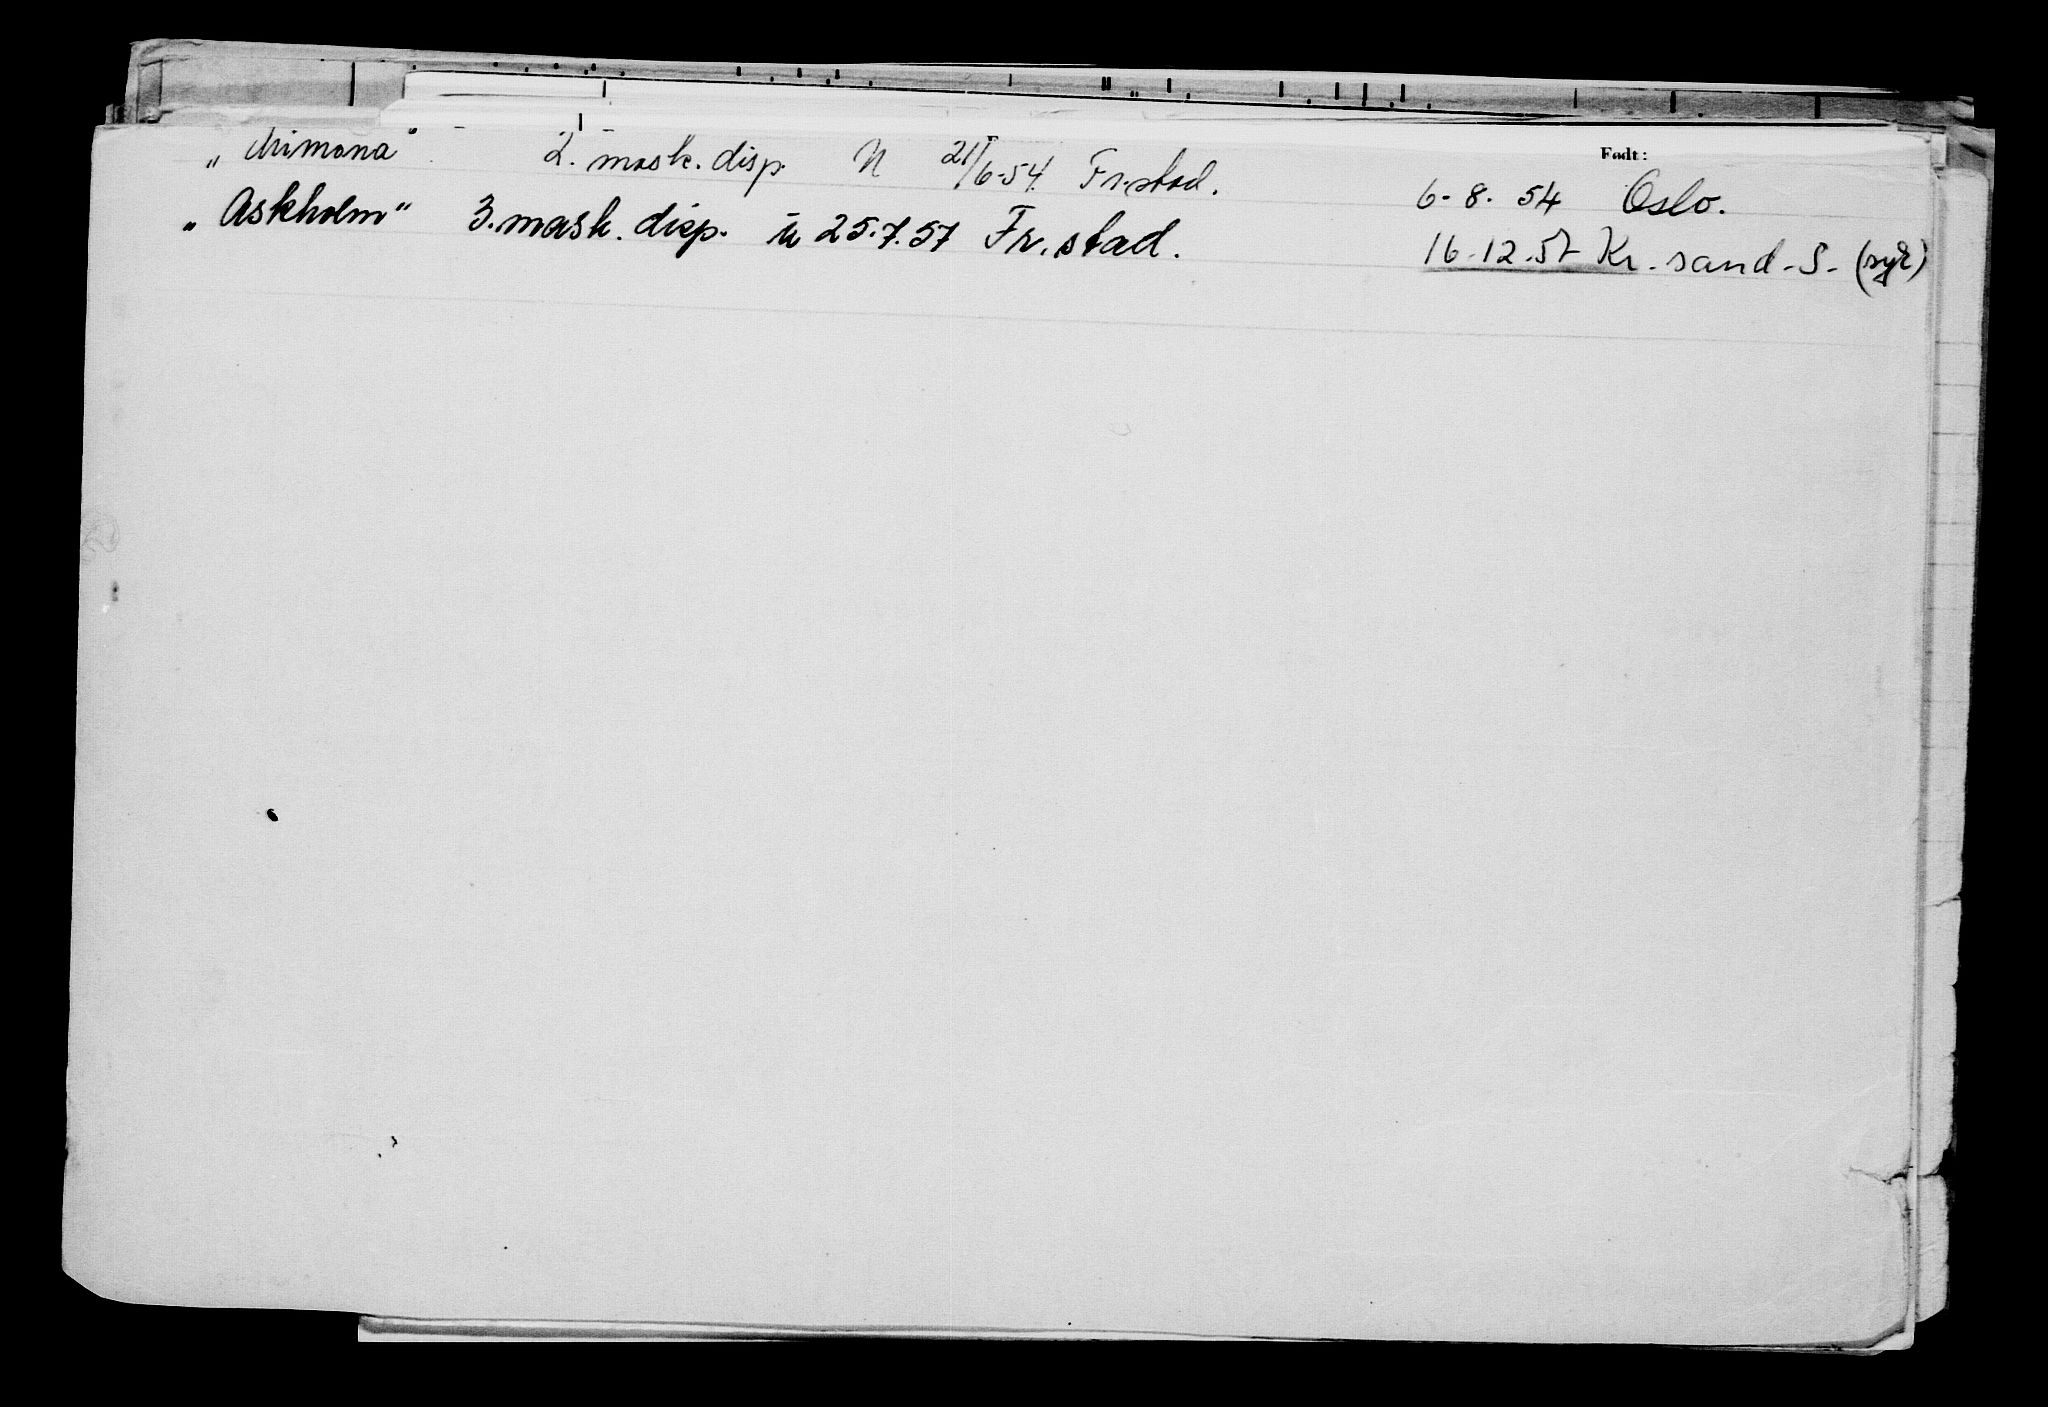 Født:
„Mimona“ 2. mask. disp. U 21/6-54 Fr.stad. 6-8. 54 Oslo.
„Askholm“ 3. mask. disp. u 25.7.57 Fr. stad. 16-12.57 Kr. sand-S- (syk)